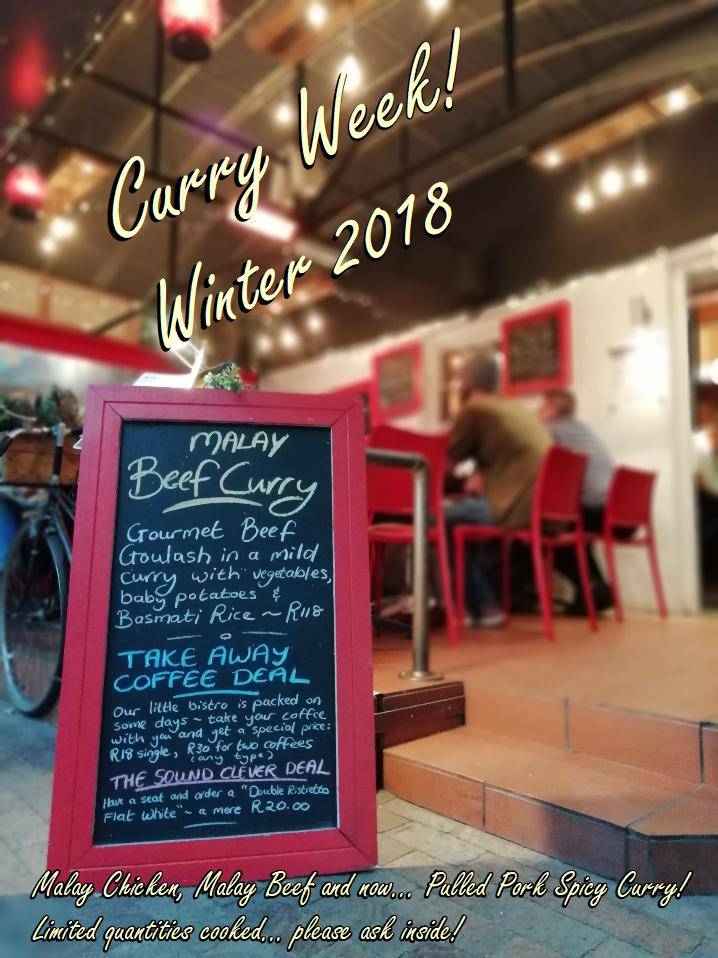 Curry Week!
Winter 2018
MALAY
Beef Curry
Gourmet Beef
Goulash in a mild
curry with vegetables,
baby potatoes &
Basmati Rice ~ R118
TAKE AWAY
COFFEE DEAL
Our little bistro is packed on
some days ~ take your coffee
with you and get a special price:
R18 single, R30 for two coffees
(any type)
THE SOUND CLEVER DEAL
Have a seat and order a "Double Ristretto
Flat White" ~ a mere R20.00
Malay Chicken, Malay Beef and now... Pulled Pork Spicy Curry!
Limited quantities cooked... please ask inside!